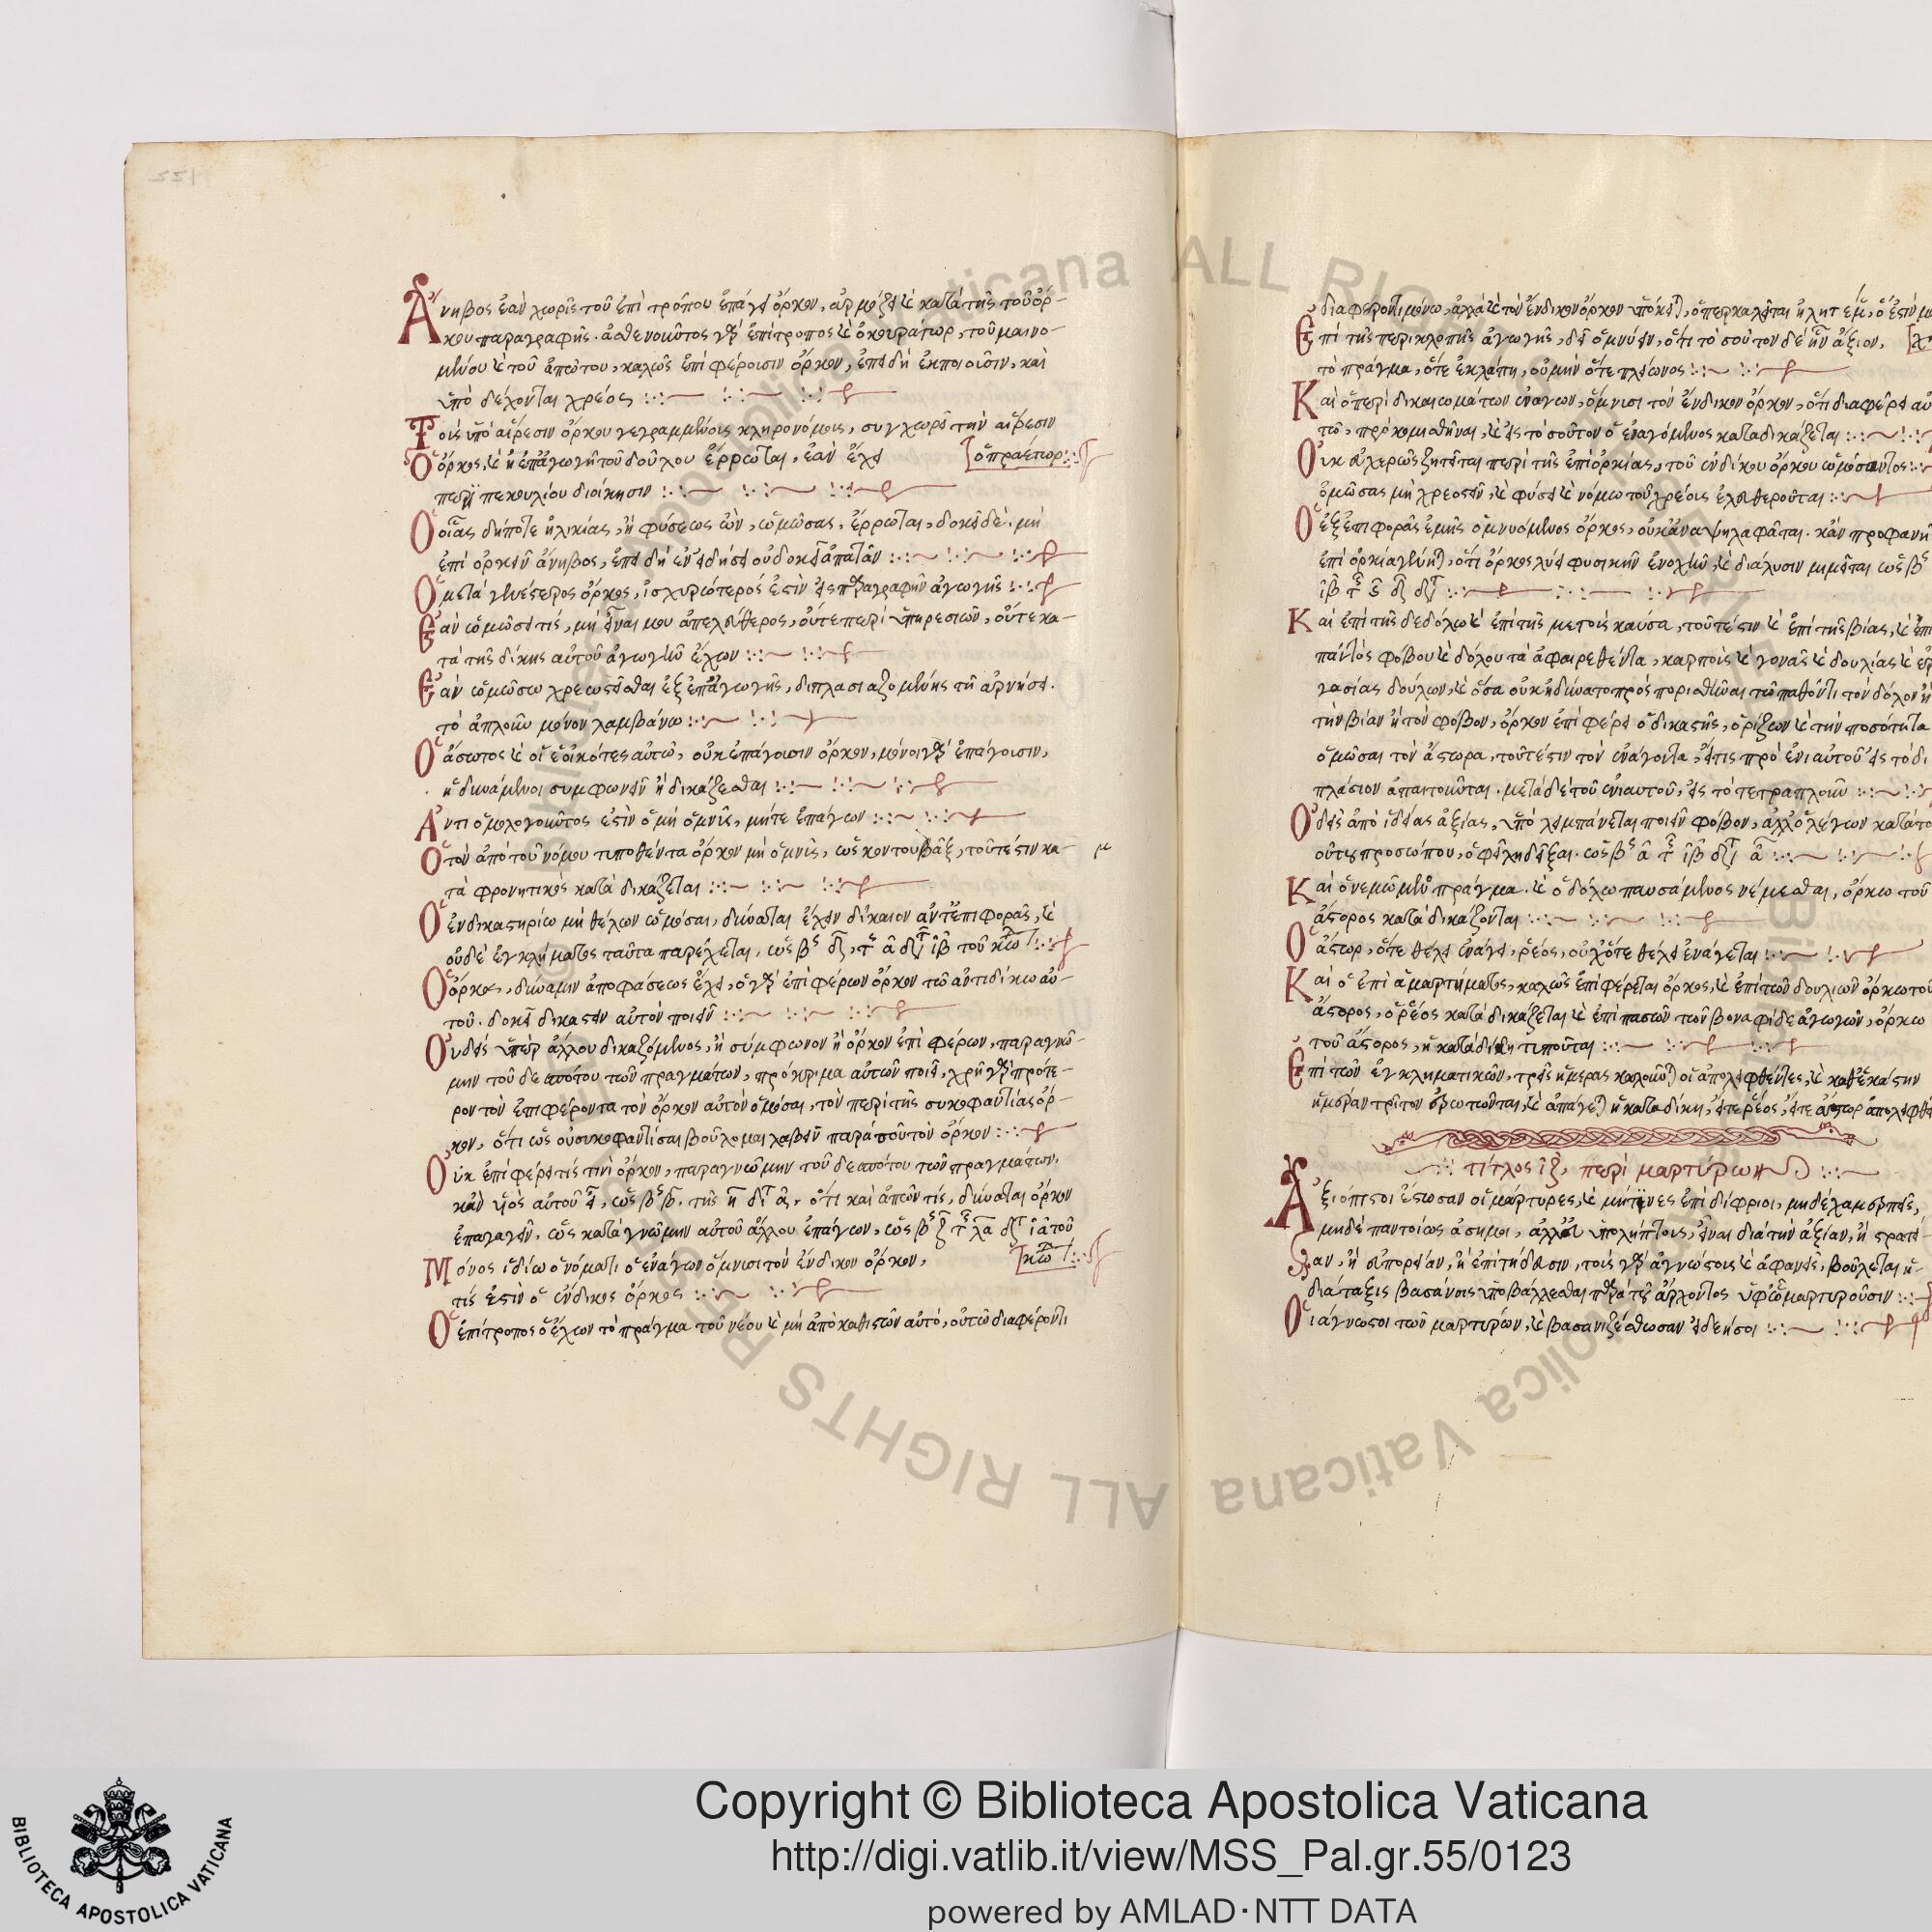 Ἄνηβος ἐὰν χωρὶς τοῦ ἐπιτρόπου ἐπάγει ὅρκον, ἁρμόζει καὶ κατὰ τῆς τοῦ ὅρ-
κου παραγραφῆς. ἀσθενοῦντος γὰρ ἐπίτροπος καὶ ὁ κουράτωρ, τοῦ μαινο-
μένου καὶ τοῦ ἀσώτου, καλῶς ἐπιφέρουσιν ὅρκον, ἐπειδὴ ἐκποιοῦσιν, καὶ
ὑποδέχονται χρέος
Τοῖς ὑπὸ αἵρεσιν ὅρκου γεγραμμένοις κληρονόμοις, συγχωρεῖ τὴν αἵρεσιν
ὁ πραίτωρ
Ὁ ὅρκος, καὶ ἡ ἐπαγωγὴ τοῦ δούλου ἔρρωται, ἐὰν ἔχει
περὶ πεκουλίου διοίκησιν
Ὁ οἵας δήποτε ἡλικίας, ἢ φύσεως ὢν, ὠμόσας, ἔρρωται, δοκεῖ δὲ μὴ
ἐπιορκεῖν ἄνηβος, ἐπειδὴ ἐν εἰδήσει οὐ δοκεῖ ἀπατᾶν
Ὁ μεταγενέστερος ὅρκος, ἰσχυρότερός ἐστιν εἰς παραγραφὴν ἀγωγῆς
Ἐὰν ὠμόσει τίς, μὴ εἶναι μου ἀπελεύθερος, οὔτε περὶ ὑπηρεσιῶν, οὔτε κα-
τὰ τῆς δίκης αὐτοῦ ἀγωγὴν ἔχων
Ἐὰν ὠμόσω χρεωστεῖσθαι ἐξ ἐπαγωγῆς, διπλασιαζομένης τῇ ἀρνήσει.
τὸ ἁπλοῦν μόνον λαμβάνω
Ὁ ἄσωτος καὶ οἱ ἐοικότες αὐτῷ, οὐκ ἐπάγουσιν ὅρκον, μόνοι γὰρ ἐπάγουσιν,
οἱ δυνάμενοι συμφωνεῖν ἢ δικάζεσθαι
Ἀντι ὁμολογοῦντος ἐστὶν ὁ μὴ ὀμνὺς, μήτε ἐπάγων
Ὁ τὸν ἀπὸ τοῦ νόμου τυποθέντα ὅρκον μὴ ὀμνὺς, ὡς κοντουβὰξ, τοῦτέστιν κα-
τὰ φρονητικὸς καταδικάζεται
Ὁ ἐν δικαστηρίῳ μὴ θέλων ὠμόσαι, δύναται ἔχειν δίκαιον ἀντεπιφορᾶς, καὶ
οὐδὲ ἐγκλήματος ταῦτα παρέχεται,
Ὁ ὅρκος, δύναμιν ἀποφάσεως ἔχει, ὁ γὰρ ἐπιφέρων ὅρκον τῷ ἀντιδίκῳ αὐ-
τοῦ. δοκεῖ δικαστὴν αὐτὸν ποιεῖν
Οὐδεὶς ὑπὲρ ἄλλου δικαζόμενος, ἢ σύμφωνον ἢ ὅρκον ἐπιφέρων, παρὰ γνώ-
μην τοῦ δεσπότου τῶν πραγμάτων, πρόκριμα αὐτῶν ποιεῖ, χρὴ γὰρ πρότε-
ρον τὸν ἐπιφέροντα τὸν ὅρκον αὐτὸν ὀμόσαι, τὸν περὶ τῆς συκοφαντίας ὅρ-
κον, ὅτι ὡς οὐ συκοφαντίσαι βούλομαι λαβεῖν παρὰ σοῦ τὸν ὅρκον
Οὐκ ἐπιφέρει τίς τινὶ ὅρκον, παρὰ γνώμην τοῦ δεσπότου τῶν πραγμάτων.
κἂν υἱὸς αὐτοῦ ὅτι καὶ ἀπών τίς, δύναται ὅρκον
ἐπαγαγεῖν, ὡς κατὰ γνώμην αὐτοῦ ἄλλου ἐπάγων, τοῦ
Μόνος ἰδίῳ ὀνόματι ὁ ἐνάγων ὄμνυσι τὸν ἔνδικον ὅρκον,
τίς ἐστὶν ὁ ἔνδικος ὅρκος
Ὁ ἐπίτροπος ὁ ἔχων τὸ πράγμα τοῦ νέου καὶ μὴ ἀποκαθιστῶν αὐτό, οὐ τῷ διαφέροντι
διαφέροντι μόνῳ, ἀλλὰ καὶ τὸν ἔνδικον ὅρκον ὑπόκειται, ὅπερ καλεῖται
Ἐπὶ τῆς περὶ κλοπῆς ἀγωγῆς, δεῖ ὀμνύειν, ὅτι τὸ σοῦτον δὲ ἦν ἄξιον,
τὸ πράγμα, ὅτε ἐκλάπη, οὐ μὴν ὅτε πλείωνος
Καὶ ὁ περὶ δικαιωμάτων ἐνάγων, ὄμνυσι τὸν ἔνδικον ὅρκον, ὅτι διαφέρει αὐ
τῷ, προκομισθῆναι, καὶ εἰς τὸ σοῦτον ὁ ἐναγόμενος καταδικάζεται
Οὐκ εὐχερῶς ζητεῖται περὶ τῆς ἐπιορκίας, τοῦ ἐνδίκου ὅρκου ὠμόσαντος
ὀμώσας μὴ χρεοστεῖν, καὶ φύσει καὶ νόμῳ τοῦ χρέους ἐλευθεροῦται
Ὁ ἐξ ἐπιφορᾶς ἐμῆς ὀμνυόμενος ὅρκος, οὐκ ἀναψηλαφᾶται. κἂν προφανὴ
ἐπιορκία γένηται, ὅτι ὅρκος λύει φυσικὴν ἐνοχὴν, καὶ διάλυσιν μιμεῖται
Καὶ ἐπὶ τῆς δεδόλω καὶ ἐπὶ τῆς μετοὶς καύσα, τοῦτέστιν καὶ ἐπὶ τῆς βίας, καὶ ἐπὶ
παντὸς φόβου καὶ δόλου τὰ ἀφαιρεθέντα, καρποὺς καὶ γονὰς καὶ δουλίας καὶ ἐρ
γασίας δούλων, καὶ ὅσα οὐκ ἠδύνατο προσπορισθῆναι τῷ παθόντι τὸν δόλον ἢ
τὴν βίαν ἢ τὸν φόβον, ὅρκον ἐπιφέρει ὁ δικαστὴς, ὁρίζων καὶ τὴν ποσότητα
ὀμῶσαι τὸν ἄκτωρα, τοῦτέστιν τὸν ἐνάγοντα, εἴτις πρὸ ἐνιαυτοῦ εἰς τὸ δι
πλάσιον ἀπαιτοῦνται. μετὰ δὲ τοῦ ἐνιαυτοῦ, εἰς τὸ τετραπλοῦν
Οὐδεὶς ἀπὸ ἰδίας ἀξίας, ὑπολαμπάνεται ποιεῖν φόβον, ἀλλ' ὁ λέγων κατὰ το
οὕτις προσώπου, ὀφείλει δεῖξαι.
Καὶ ὁ νεμώμενος πράγμα. καὶ ὁ δόλῳ παυσάμενος νέμεσθαι, ὅρκῳ τοῦ
ἄκτορος καταδικάζονται
Ὁ ἄκτωρ, ὅτε θέλει ἐνάγει, ῥέος, οὐχ ὅτε θέλει ἐνάγεται
Καὶ ὁ ἐπὶ ἁμαρτήματος, καλῶς ἐπιφέρεται ὅρκος, καὶ ἐπὶ τῶν δουλιῶν ὅρκῳ τοῦ
ἄκτορος, ὁ ῥέος καταδικάζεται καὶ ἐπὶ πασῶν τῶν βοναφίδε ἀγωγῶν, ὅρκῳ
τοῦ ἄκτορος, ἡ καταδίκη τυποῦται
Ἐπὶ τῶν ἐγκληματικῶν, τρεῖς ἡμέρας καλοῦνται οἱ ἀπολειφθέντες, καὶ καθ' ἑκάστην
ἡμέραν τρίτον ἐρωτῶνται, καὶ ἀπάγεται ἡ καταδίκη, εἴτε ῥέος, εἴτε ἄκτωρ ἀπολειφθῇ
τίτλος ιζ, περὶ μαρτύρων
Ἀξιόπιστοι ἔστωσαν οἱ μάρτυρες, καὶ μήτινες ἐπιδίφριοι, μηδὲ χαμερπεῖς,
μηδὲ παντοίως ἄσημοι, ἀλλ' εὐυπολήπτους, εἶναι διὰ τὴν ἀξίαν, ἢ στρατεί-
αν, ἢ εὐπορείαν, ἢ ἐπιτήδευσιν, τοὺς γὰρ ἀγνώστους καὶ ἀφανεῖς, βούλεται ἡ
διάταξις βασάνοις ὑποβάλλεσθαι παρὰ τοῦ ἄρχοντος ἐφ' ᾧ μαρτυροῦσιν
Οἱ ἄγνωστοι τῶν μαρτύρων, καὶ βασανιζέσθωσαν εἰ δεήσοι
Copyright © Biblioteca Apostolica Vaticana
http://digi.vatlib.it/view/MSS_Pal.gr.55/0123
powered by AMLAD·NTT DATA
BIBLIOTECA APOSTOLICA VATICANA